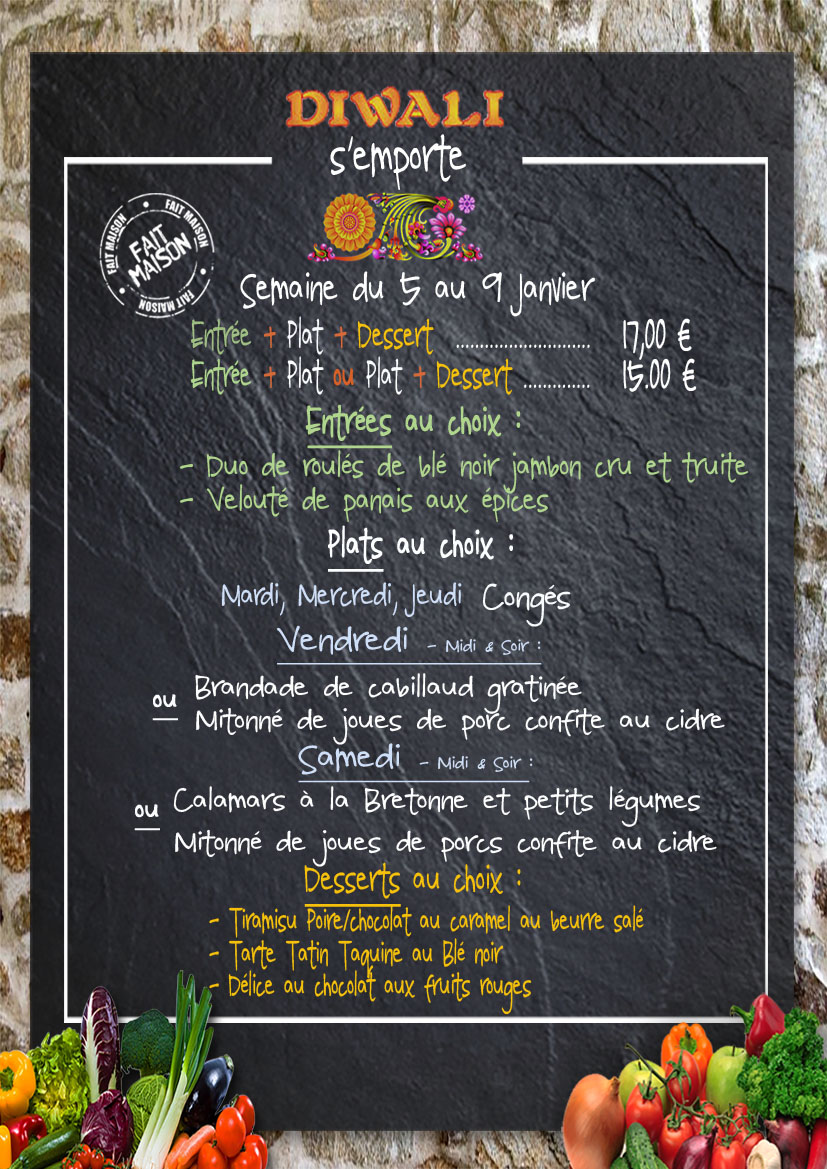 DIWALI
s'emporte
FAIT MAISON
FAIT MAISON
FAIT MAISON
FAIT
MAISON
Semaine du 5 au 9 Janvier
Entrée + Plat + Dessert ............................ 17,00 €
Entrée + Plat ou Plat + Dessert .............. 15.00 €
Entrées au choix :
- Duo de roulés de blé noir jambon cru et truite
- Velouté de panais aux épices
Plats au choix :
Mardi, Mercredi, Jeudi Congés
Vendredi - Midi & Soir :
Brandade de cabillaud gratinée
ou
Mitonné de joues de porc confite au cidre
Samedi - Midi & Soir :
Calamars à la Bretonne et petits légumes
ou
Mitonné de joues de porcs confite au cidre
Desserts au choix :
- Tiramisu Poire/chocolat au caramel au beurre salé
- Tarte Tatin Taquine au Blé noir
- Délice au chocolat aux fruits rouges